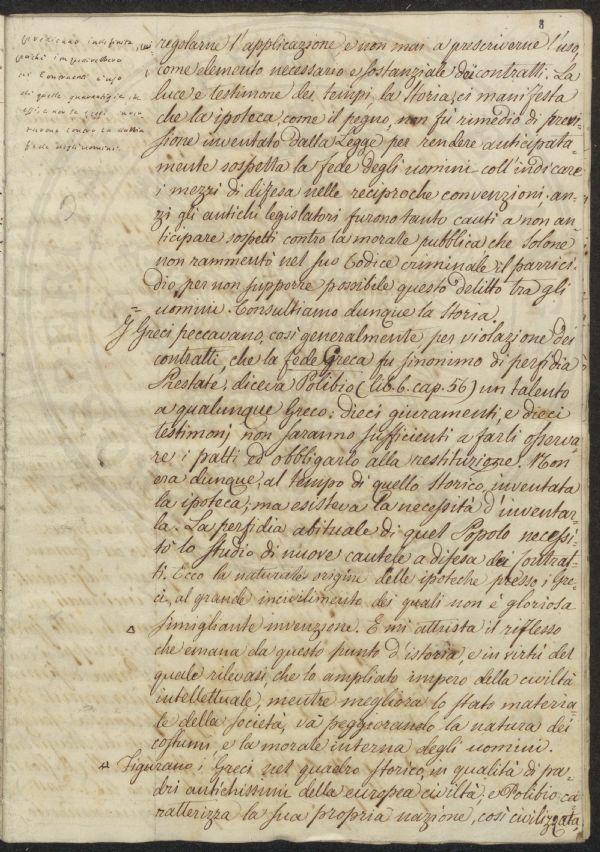 8
regolarne l'applicazione, e non mai a prescriverne l'uso,
come elemento necessario e sostanziale dei contratti. La
luce e testimone dei tempi, la Storia, ci manifesta
che la ipoteca, come il pegno, non fu rimedio di previ=
sione inventato dalla Legge per rendere anticipata=
mente sospetta la fede degli uomini coll'indicare
i mezzi di difesa nelle reciproche convenzioni. an=
zi gli antichi legislatori furono tanto cauti a non an=
ticipare sospetti contro la morale pubblica che Solone
non rammentò nel suo Codice criminale il parrici=
dio per non supporre possibile questo delitto tra gli
uomini. Consultiamo dunque la Storia.
I Greci peccavano, così generalmente per violazione dei
contratti, che la fede Greca fu sinonimo di perfidia
Prestate, diceva Polibio (lib. 6. cap. 56) un talento
a qualunque Greco: dieci giuramenti, e dieci
testimonj non saranno sufficienti a farli osserva=
re i patti ed obbligarlo alla restituzione. Non
era dunque, al tempo di quello storico, inventata
la ipoteca; ma esisteva la necessità d'inventar=
la. La perfidia abituale di quel Popolo necessi=
tò lo studio di nuove cautele a difesa dei contrat=
ti. Ecco la naturale origine delle ipoteche presso i Gre=
ci, al grande incivilimento dei quali non è gloriosa
simigliante invenzione. E mi attrista il riflesso
che emana da questo punto d'istoria, e in virtù del
quale rilevasi, che lo ampliato impero della civiltà
intellettuale, mentre megliora lo stato materia=
le della società, va peggiorando la natura dei
costumi, e la morale interna degli uomini.
Figurano i Greci nel quadro storico, in qualità di pa=
dri antichissimi della europea civiltà; e Polibio ca
ratterizza la sua propria nazione, così civilizzata
indefinita
poichè
nei Contratti l'uso
di quelle
contro la dubbia
fede degli uomini.